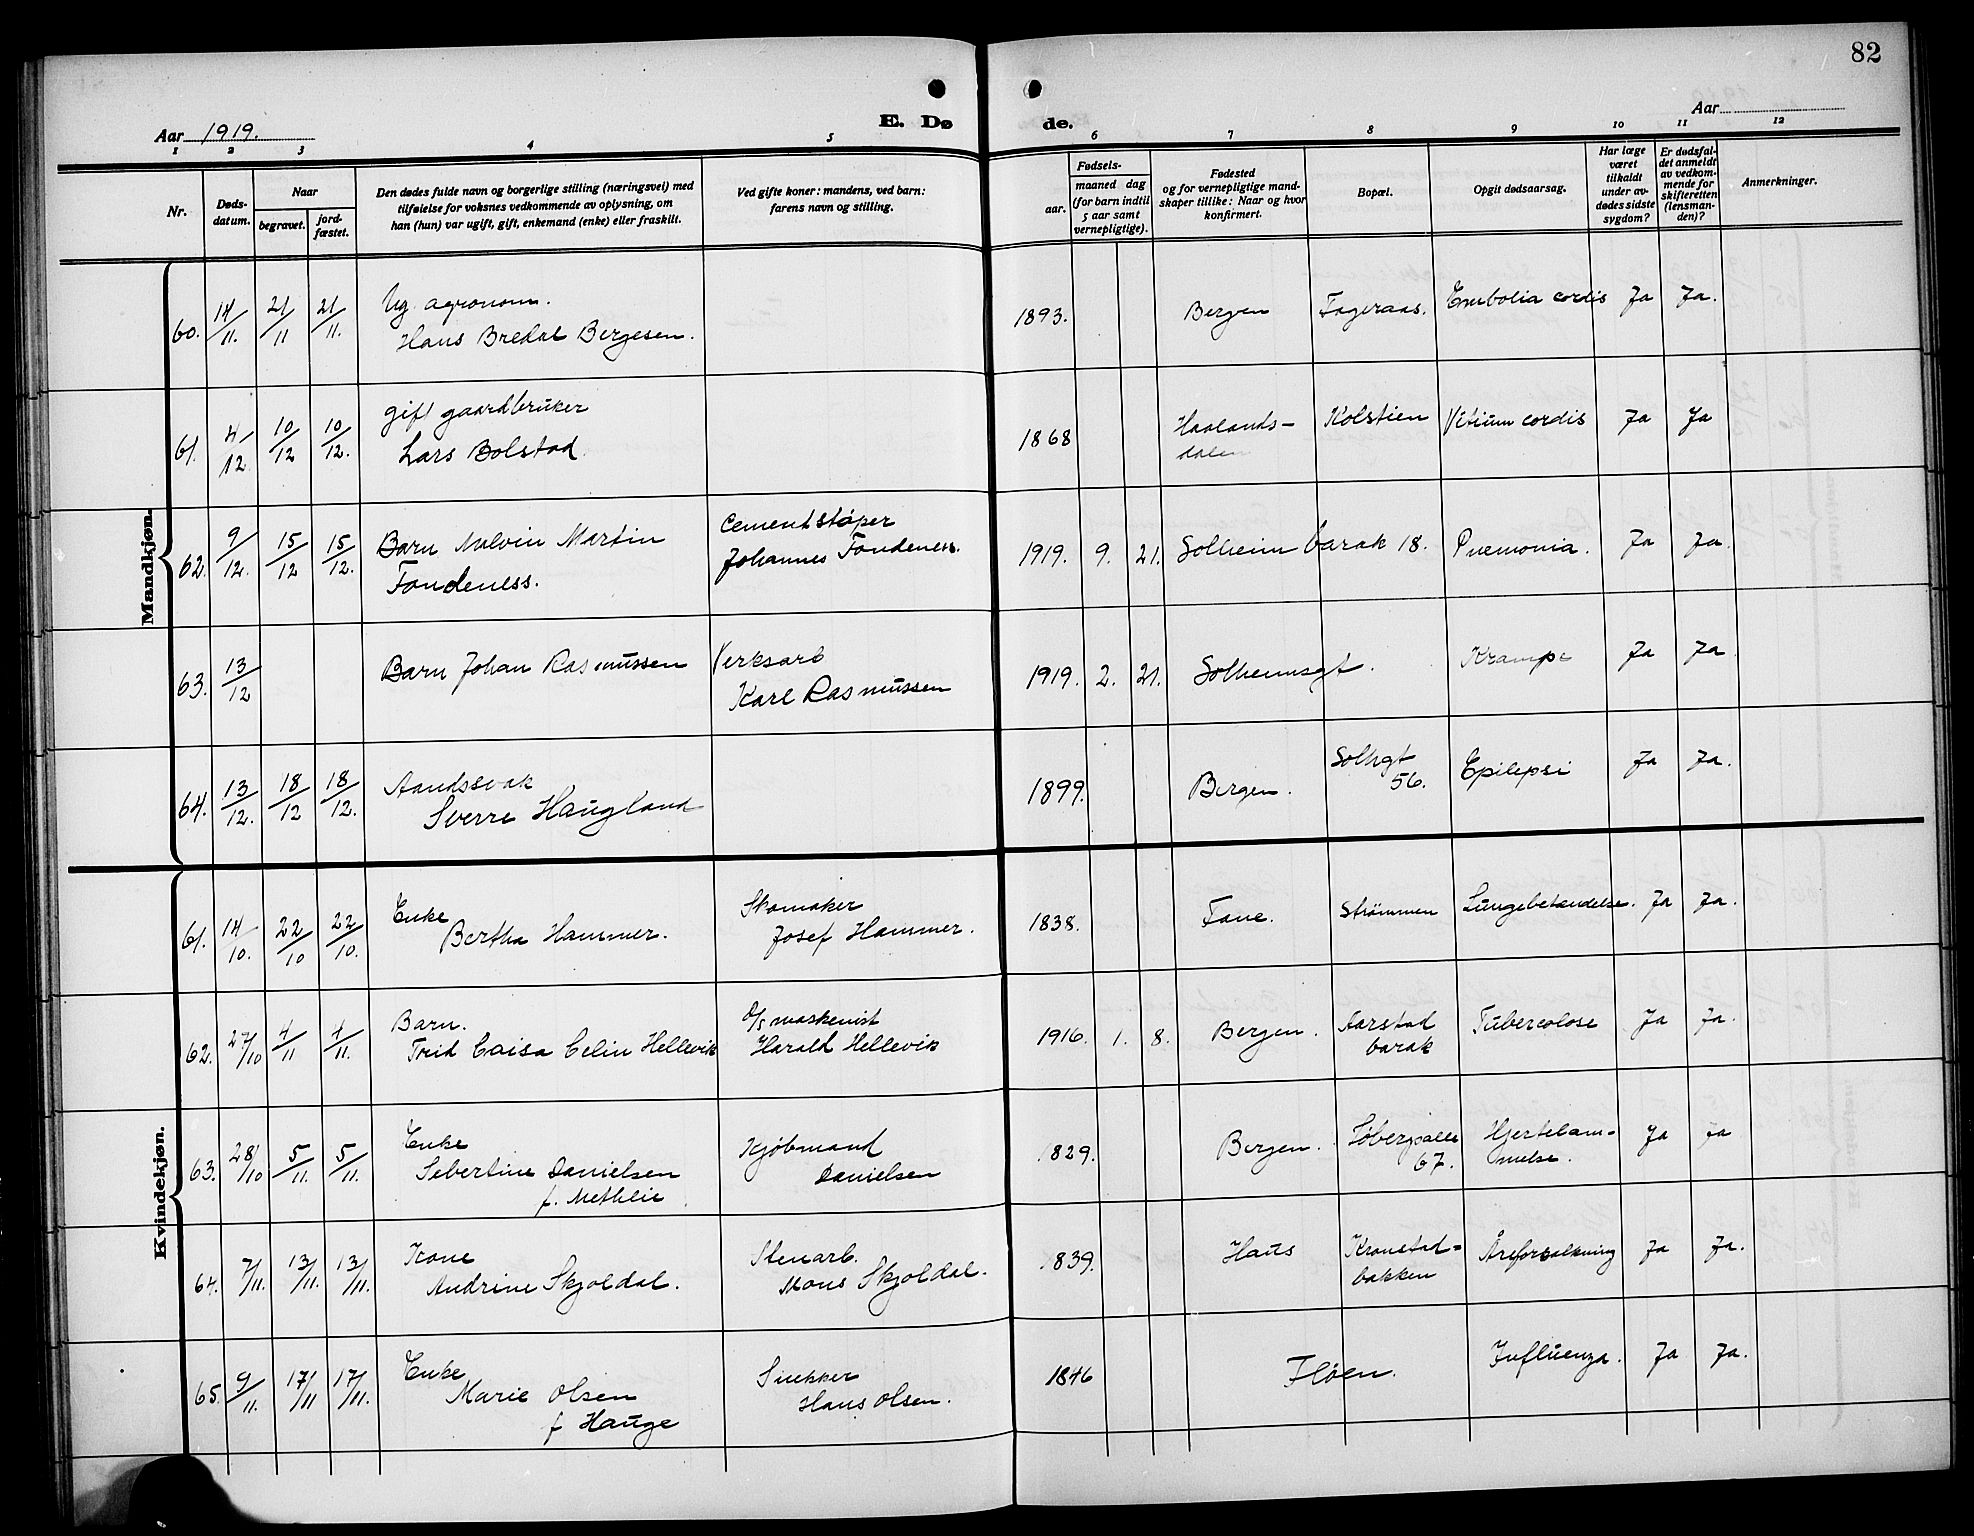 82
Aar 1919.
E. Døde.
Aar
1 2 3 4 5 6 7 8 9 10 11 12
Nr.
Døds-
datum.
Naar
begravet.
jord-
fæstet.
Den dødes fulde navn og borgerlige stilling (næringsvei) med
tilføielse for voksnes vedkommende av oplysning, om
han (hun) var ugift, gift, enkemand (enke) eller fraskilt.
Ved gifte koner: mandens, ved barn:
farens navn og stilling.
Fødsels-
aar.
maaned dag
(for barn indtil
5 aar samt
vernepligtige).
Fødested
og for vernepligtige mand-
skaper tillike: Naar og hvor
konfirmert.
Bopæl.
Opgit dødsaarsag.
Har læge
været
tilkaldt
under av-
dødes sidste
sygdom?
Er dødsfal-
det anmeldt
av vedkom-
mende for
skifteretten
(lensman-
den)?
Anmerkninger.
Mandkjøn.
60. 14/11. 21/11 21/11. Ug. agronom. 1893. Bergen Fageraas. Embolia cordis Ja Ja.
Hans Bredal Bergesen.
61. 4/12. 10/12 10/12. gift gaardbruker 1868 Haalands- Kolstien Vitium cordis Ja Ja
Lars Bolstad. dalen
62. 9/12. 15/12 15/12. Barn Malvin Martin Cementstøper 1919. 9. 21. Solheim barak 18. Pnemonia. Ja Ja.
Fondeness. Johannes Fondeness.
63. 13/12 Barn Johan Rasmussen Verksarb 1919. 2. 21. Solheimsgt. Krampe Ja Ja.
Karl Rasmussen
64. 13/12. 18/12 18/12. Aandssvak 1899. Bergen. Solhgt Epilepsi Ja Ja.
Sverre Haugland 56.
Kvindekjøn.
61. 14/10. 22/10 22/10. Enke Skomaker 1838. Fane. Strømmen Lungebetændelse. Ja Ja.
Bertha Hammer. Josef Hammer.
62. 27/10 4/11 4/11. Barn. d/s maskenist 1916. 1. 8. Bergen. Aarstad Tuberculose Ja Ja.
Caisa Celin Hellevik Harald Hellevik barak
63. 28/10 5/11. 5/11. Enke Kjøbmand 1829. Bergen. Hjertelam- Ja Ja
Sebertine Danielsen Danielsen 67. melse.
f. Methlie
64. 7/11. 13/11. 13/11. Kone Stenarb. 1839. Haus Kronstad- Åreforkalkning Ja Ja.
Andrine Skjoldal. Mons Skjoldal. bakken
65. 9/11. 17/11 17/11. Enke Snekker 1846 Fløen. Influenza. Ja Ja.
Marie Olsen Hans Olsen.
f Hauge